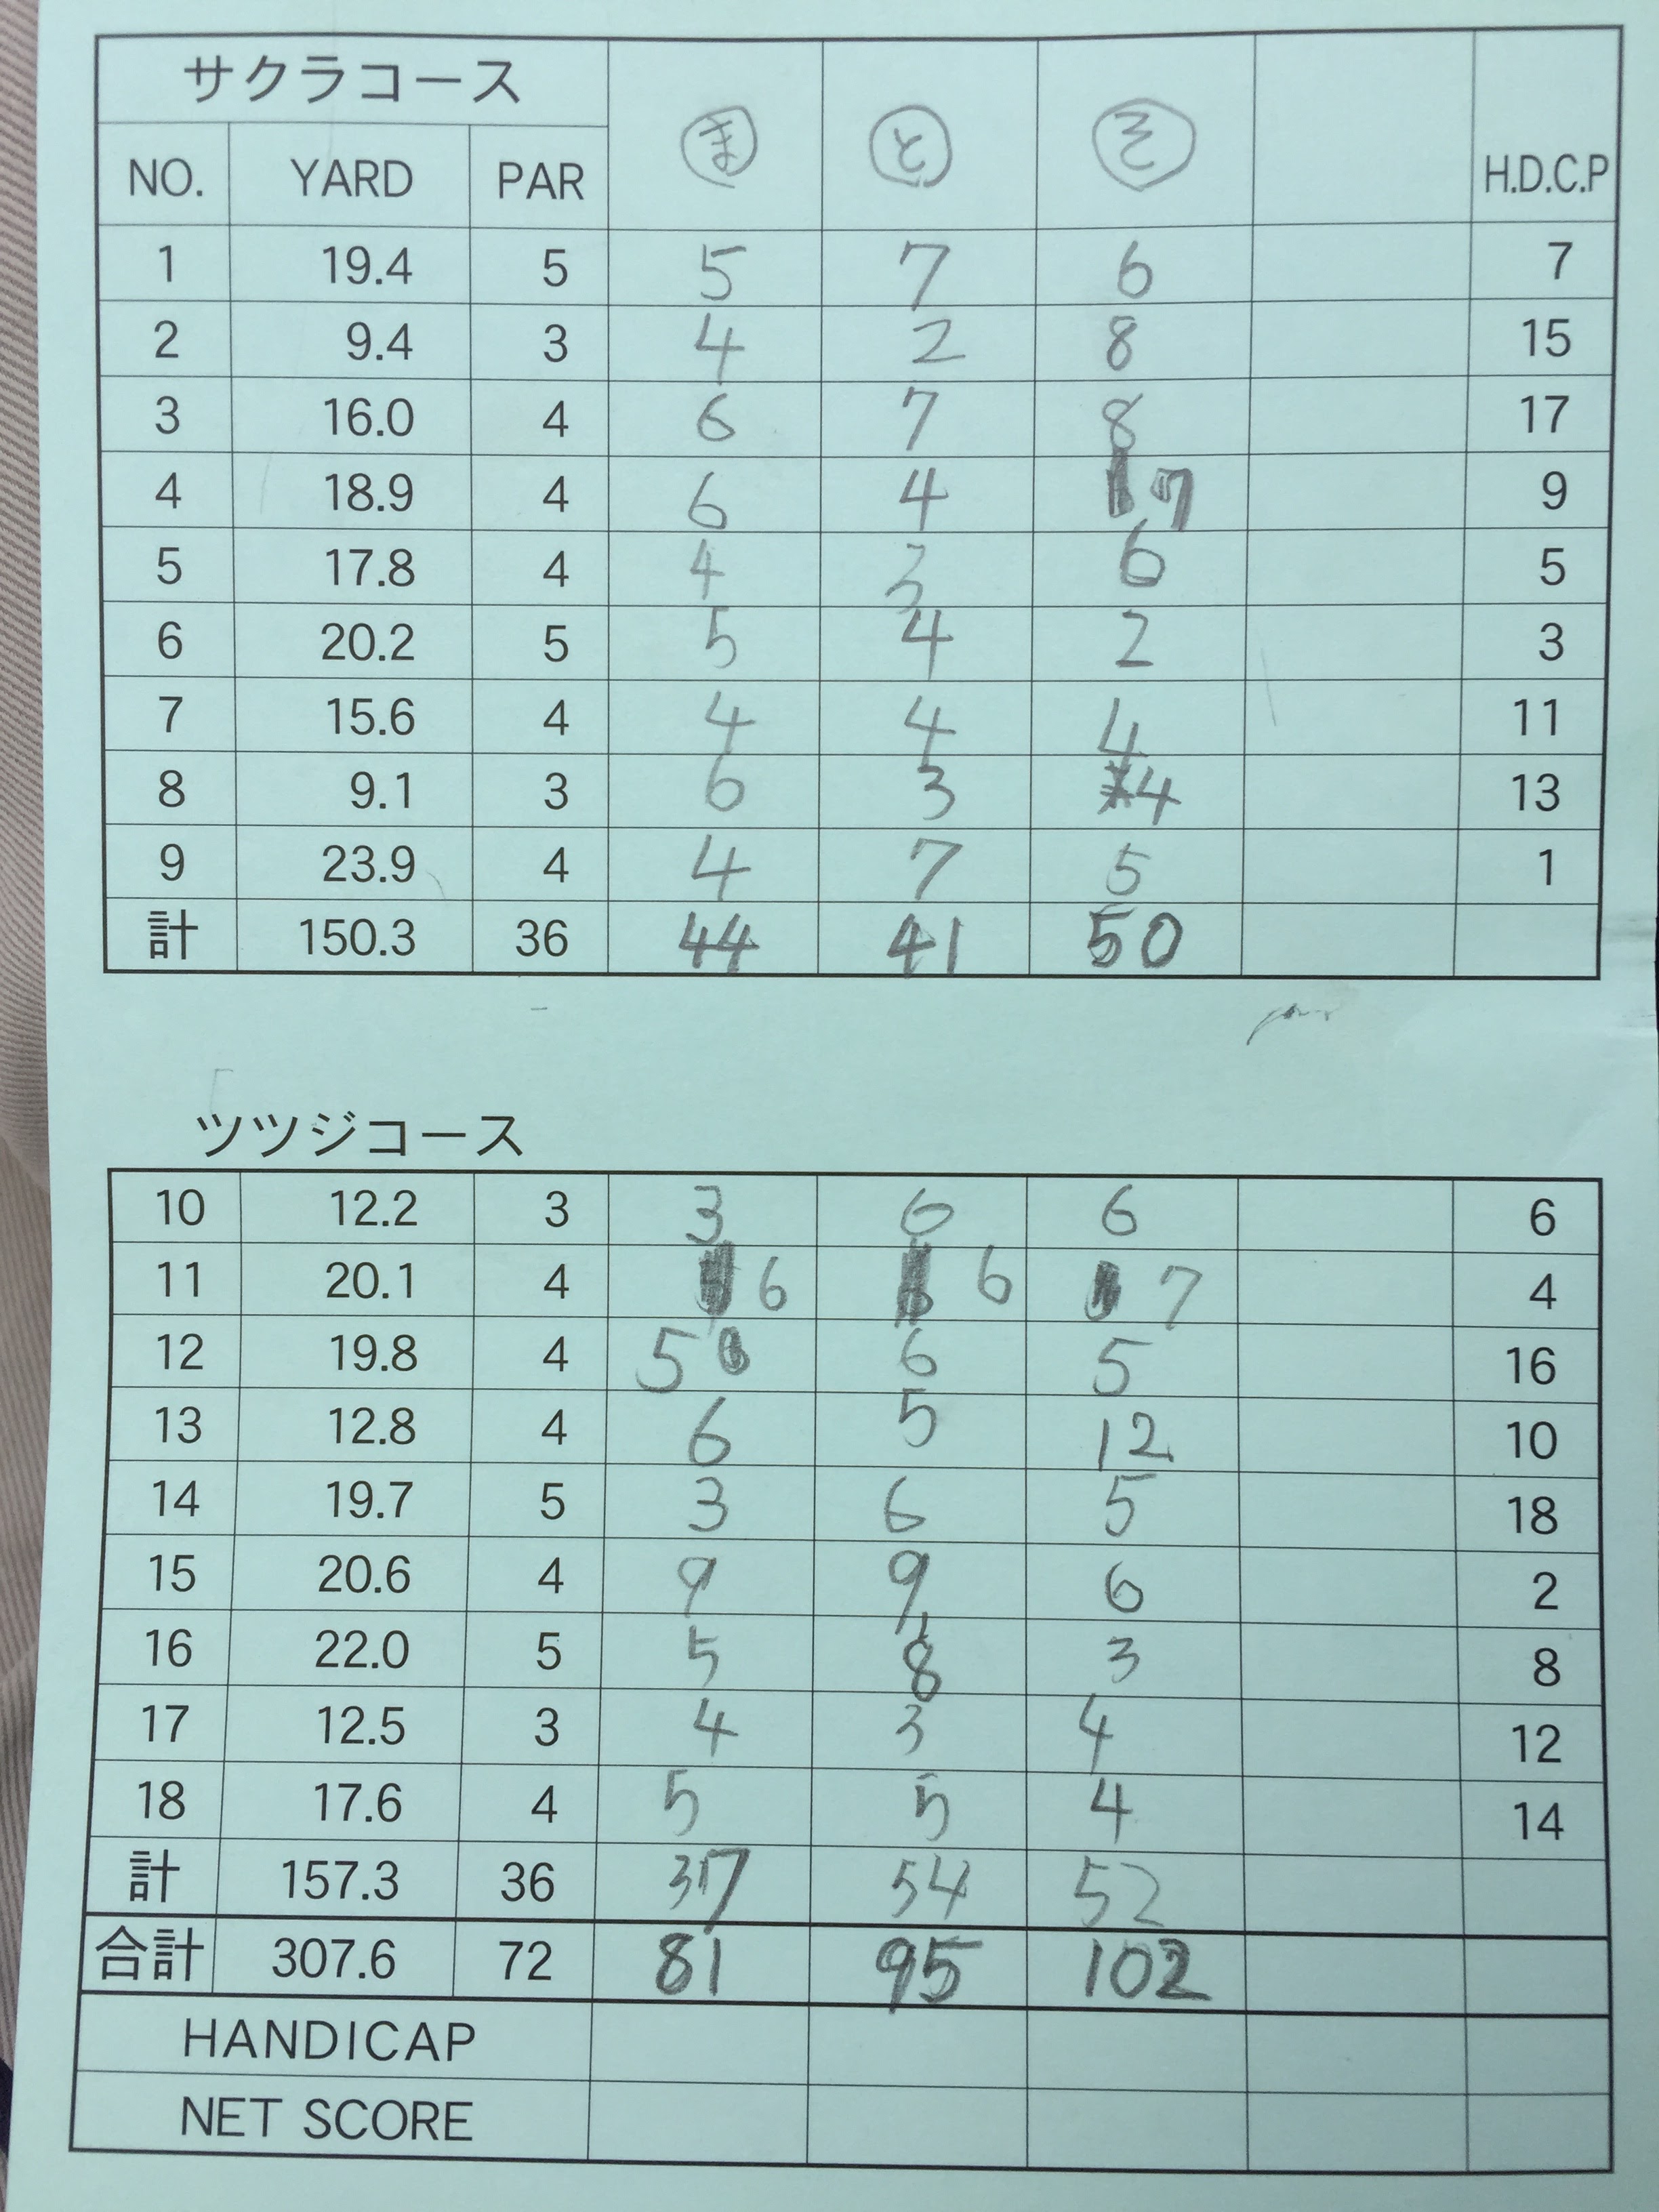 サクラコース ま と そ
NO. YARD PAR H.D.C.P
1 19.4 5 5 7 6 7
2 9.4 3 4 2 8 15
3 16.0 4 6 7 8 17
4 18.9 4 6 4 7 9
5 17.8 4 4 3 6 5
6 20.2 5 5 4 2 3
7 15.6 4 4 4 4 11
8 9.1 3 6 3 4 13
9 23.9 4 4 7 5 1
計 150.3 36 44 41 50
ツツジコース
10 12.2 3 3 6 6 6
11 20.1 4 6 6 7 4
12 19.8 4 5 6 5 16
13 12.8 4 6 5 12 10
14 19.7 5 3 6 5 18
15 20.6 4 9 9 6 2
16 22.0 5 5 8 3 8
17 12.5 3 4 3 4 12
18 17.6 4 5 5 4 14
計 157.3 36 37 54 52
合計 307.6 72 81 95 102
HANDICAP
NET SCORE